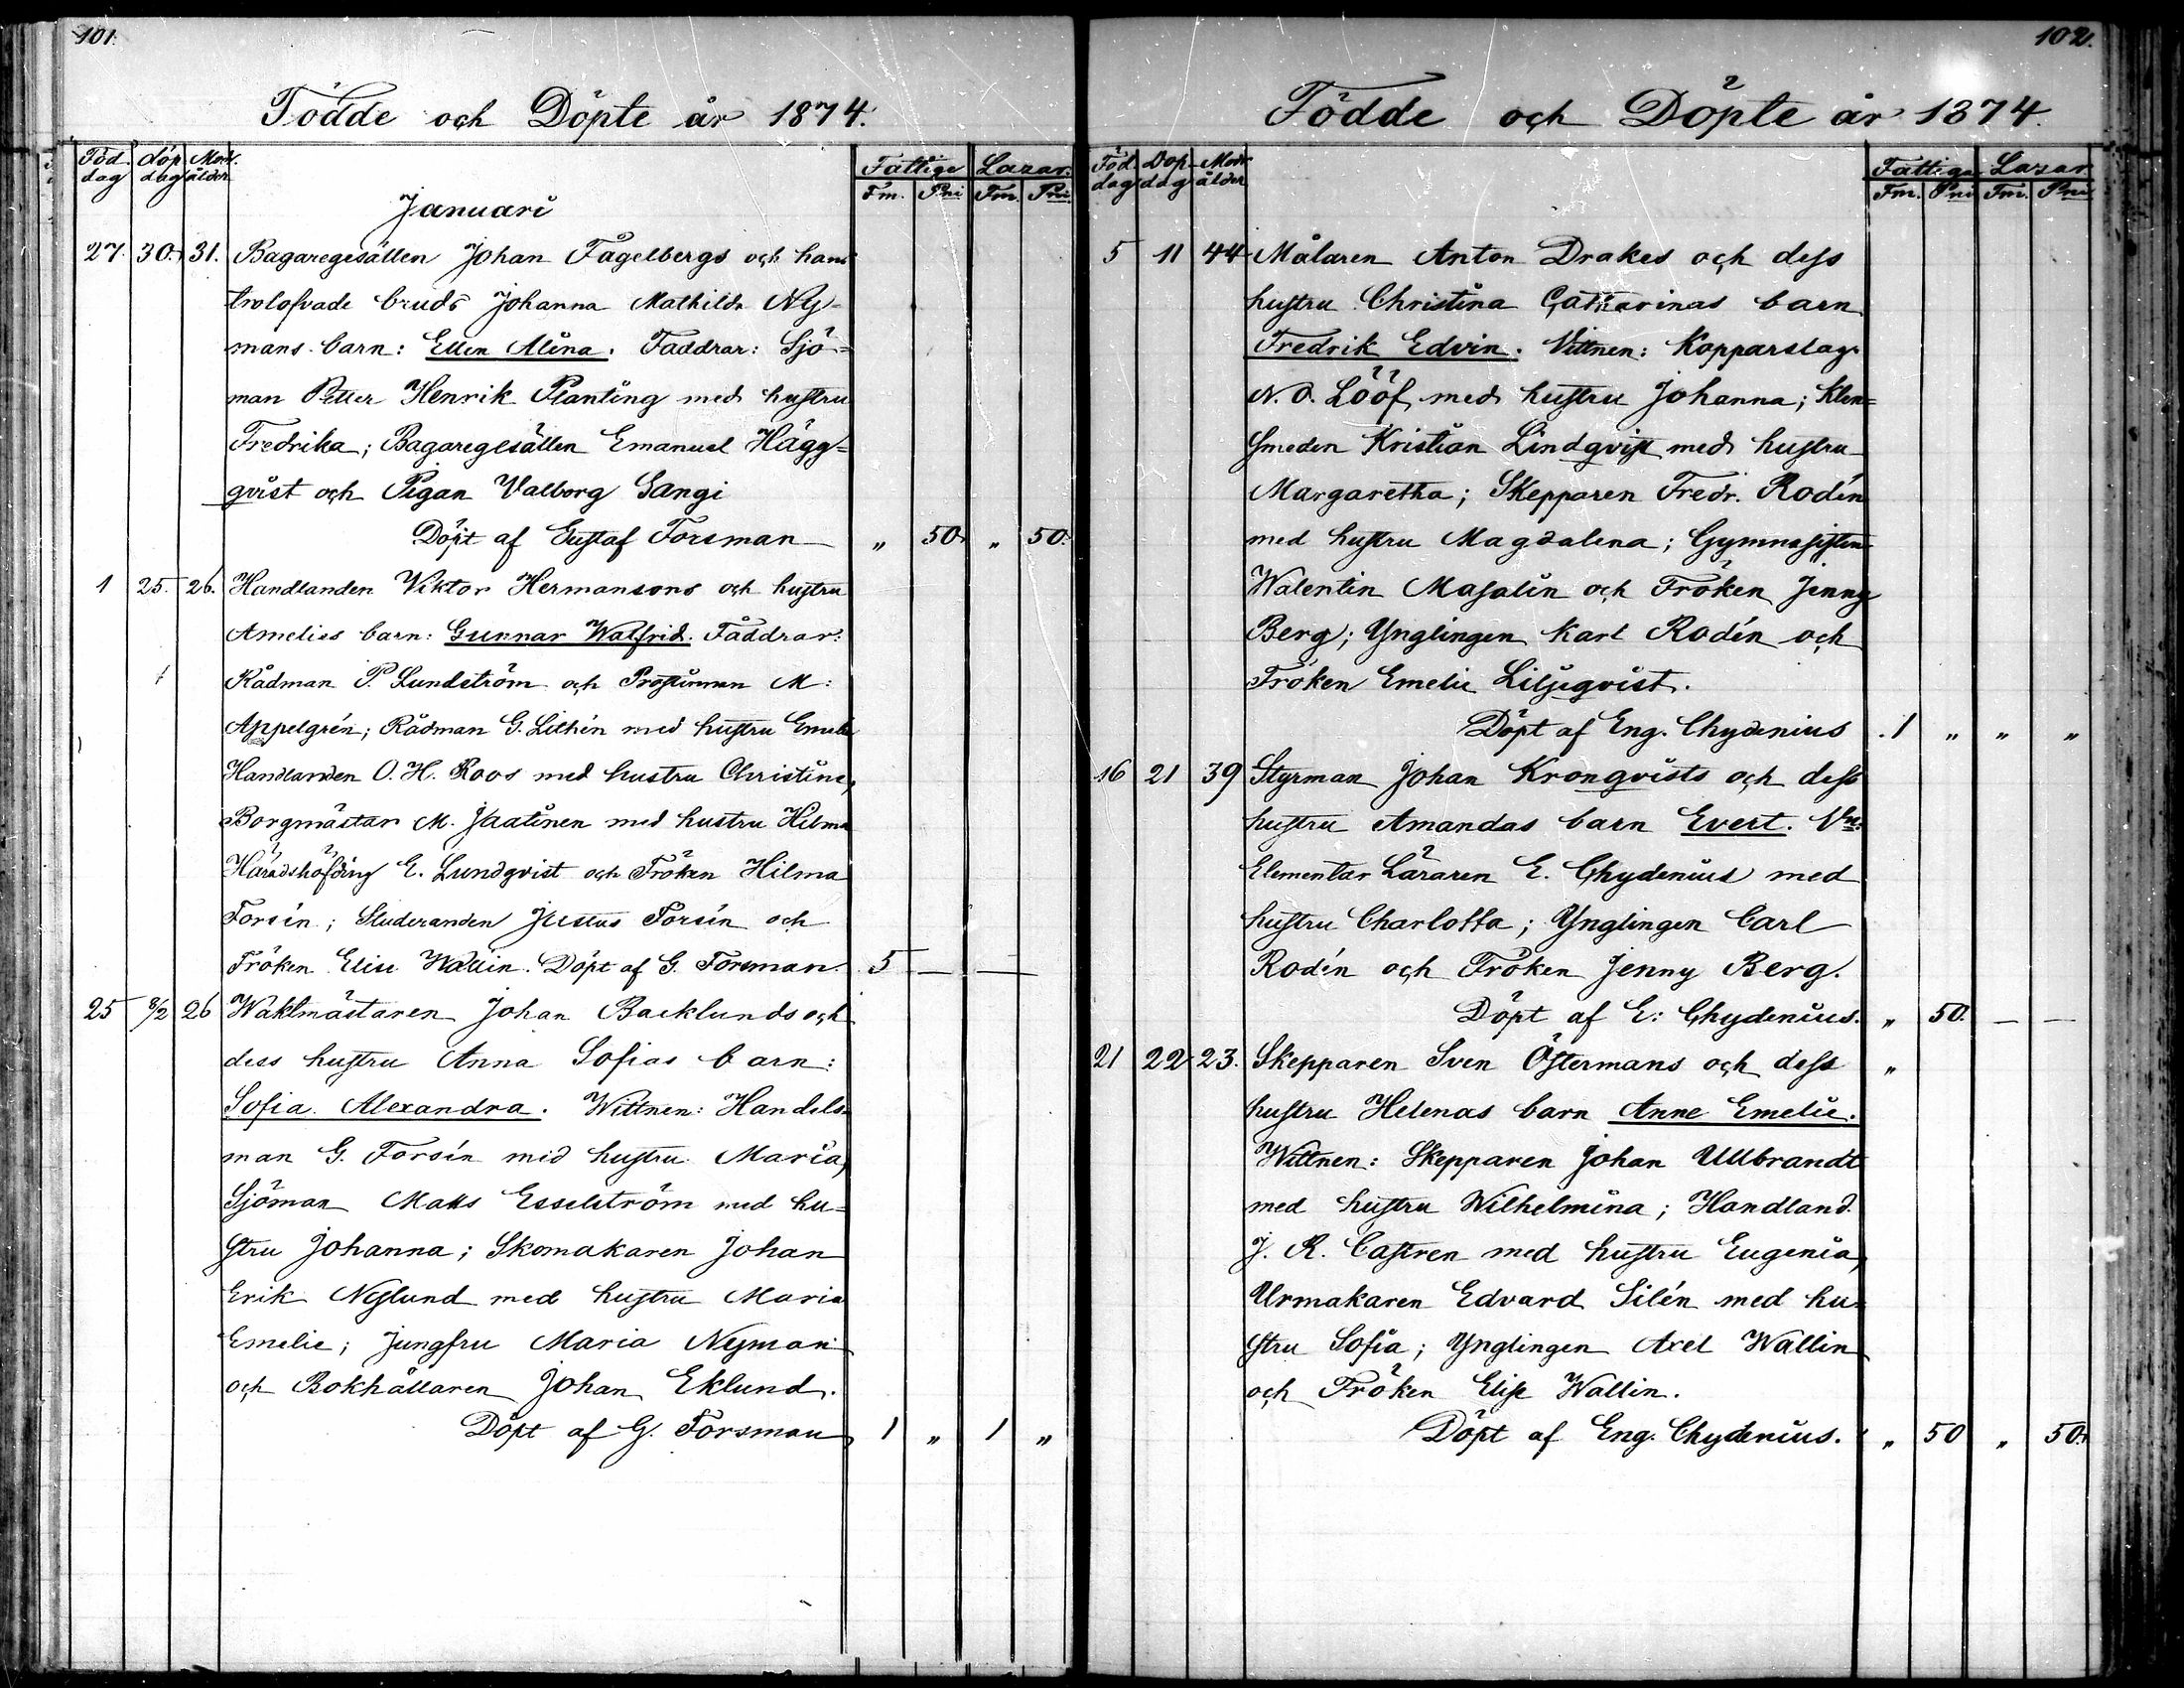 101.
Födde och Döpte år 1874.
Föd. dag döp dag Modr. ålder Fattige Lazar.
Fm. Pni Fm. Pni
Januari
27. 30. 31. Bagaregesällen Johan Fågelbergs och hans
trolofvade bruds Johanna Mathilda Ny=
mans barn: Ellen Alina. Faddrar: Sjö=
man Petter Henrik Planting med hustru
Fredrika; Bagaregesällen Emanuel Hägg=
qvist och Pigan Valborg Sangi
Döpt af Gustaf Forsman „ 50. „ 50.
1 25. 26. Handlanden Viktor Hermansons och hustru
Amelies barn: Gunnar Walfrid. Faddrar:
Rådman P. Sundström och Prostinnan M:
Appelgrén; Rådman G. Lithén med hustru Emelie
Handlanden O. H. Roos med hustru Christina,
Borgmästar M. Jaatinen med hustru Hilma
Häradshöfding E. Lundqvist och Fröken Hilma
Forsén; Studeranden Justus Forsén och
Fröken Elise Wallin. Döpt af G. Forsman. 5 — —
25 8/2 26 Waktmästaren Johan Backlunds och
dess hustru Anna Sofias barn:
Sofia Alexandra. Wittnen: Handels=
man G. Forsén med hustru Maria,
Sjöman Matts Esselström med hu=
stru Johanna; Skomakaren Johan
Erik Nylund med hustru Maria
Emelie; Jungfru Maria Nyman
och Bokhållaren Johan Eklund.
Döpt af G. Forsman 1 „ 1 „
102.
Födde och Döpte år 1874.
Föd. dag Dop dag Modr ålder Fattige Lazar
Fm. Pni Fm. Pni
5 11 44 Målaren Anton Drakes och dess
hustru Christina Catharinas barn
Fredrik Edvin. Vittnen: Kopparslag.
N. O. Lööf med hustru Johanna; Klen=
smeden Kristian Lindqvist med hustru
Margaretha; Skepparen Fredr. Rodén
med hustru Magdalena; Gymnasisten
Walentin Masalin och Fröken Jenny
Berg; Ynglingen Karl Rodén och
Fröken Emelie Liljeqvist.
Döpt af Eng. Chydenius .1 „ „ „
16 21 39 Styrman Johan Kronqvists och dess
hustru Amandas barn Evert. Vn:
Elementar Läraren E. Chydenius med
hustru Charlotta; Ynglingen Carl
Rodén och Fröken Jenny Berg.
Döpt af E: Chydenius. „ 50. — —
21 22 23. Skepparen Sven Östermans och dess „
hustru Helenas barn Anne Emelie.
Wittnen: Skepparen Johan Ullbrandt
med hustru Wilhelmina; Handland.
J. R. Castren med hustru Eugenia,
Urmakaren Edvard Silén med hu=
stru Sofia; Ynglingen Axel Wallin
och Fröken Elise Wallin.
Döpt af Eng. Chydenius. „ 50 „ 50.